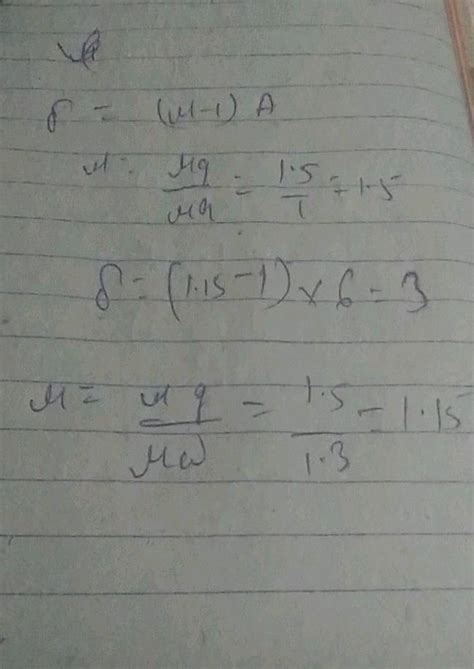 δ = (μ-1) A
μ = μg/μa = 1.5/1 = 1.5
δ = (1.15-1) × 6 = 3
μ = μg/μω = 1.5/1.3 = 1.15